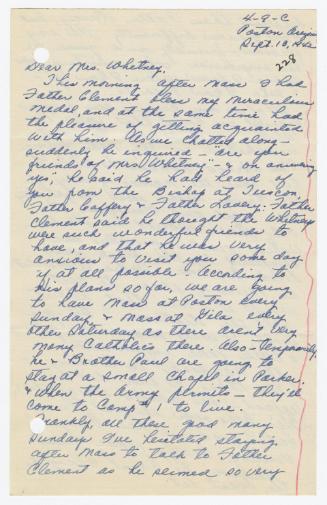 4-9-C
Poston Arizona
Sept. 10, 1942
228
Dear Mrs. Whitney,
This morning after Mass I had
Father Clement bless my miraculous
medal, and at the same time had
the pleasure of getting acquainted
with him. As we chatted along -
suddenly he inquired - are you
friends of Mrs. Whitney's - on answering
"yes", he said he had heard of
you from the Bishop at Tucson,
Father Caffery & Father Lavery. Father
Clement said he thought the Whitneys
were such wonderful friends to
have, and that he was very
anxious to visit you some day
if at all possible. According to
his plans so far, we are going
to have Mass at Poston every
Sunday & Mass at Gila every
other Saturday as there aren't very
many Catholics there. Also - temporarily
he & Brother Paul are going to
stay at a small Chapel in Parker.
& when the Army permits - they'll
come to Camp #1 to live.
Frankly, all these good many
Sundays I've hesitated staying
after Mass to talk to Father
Clement as he seemed so very